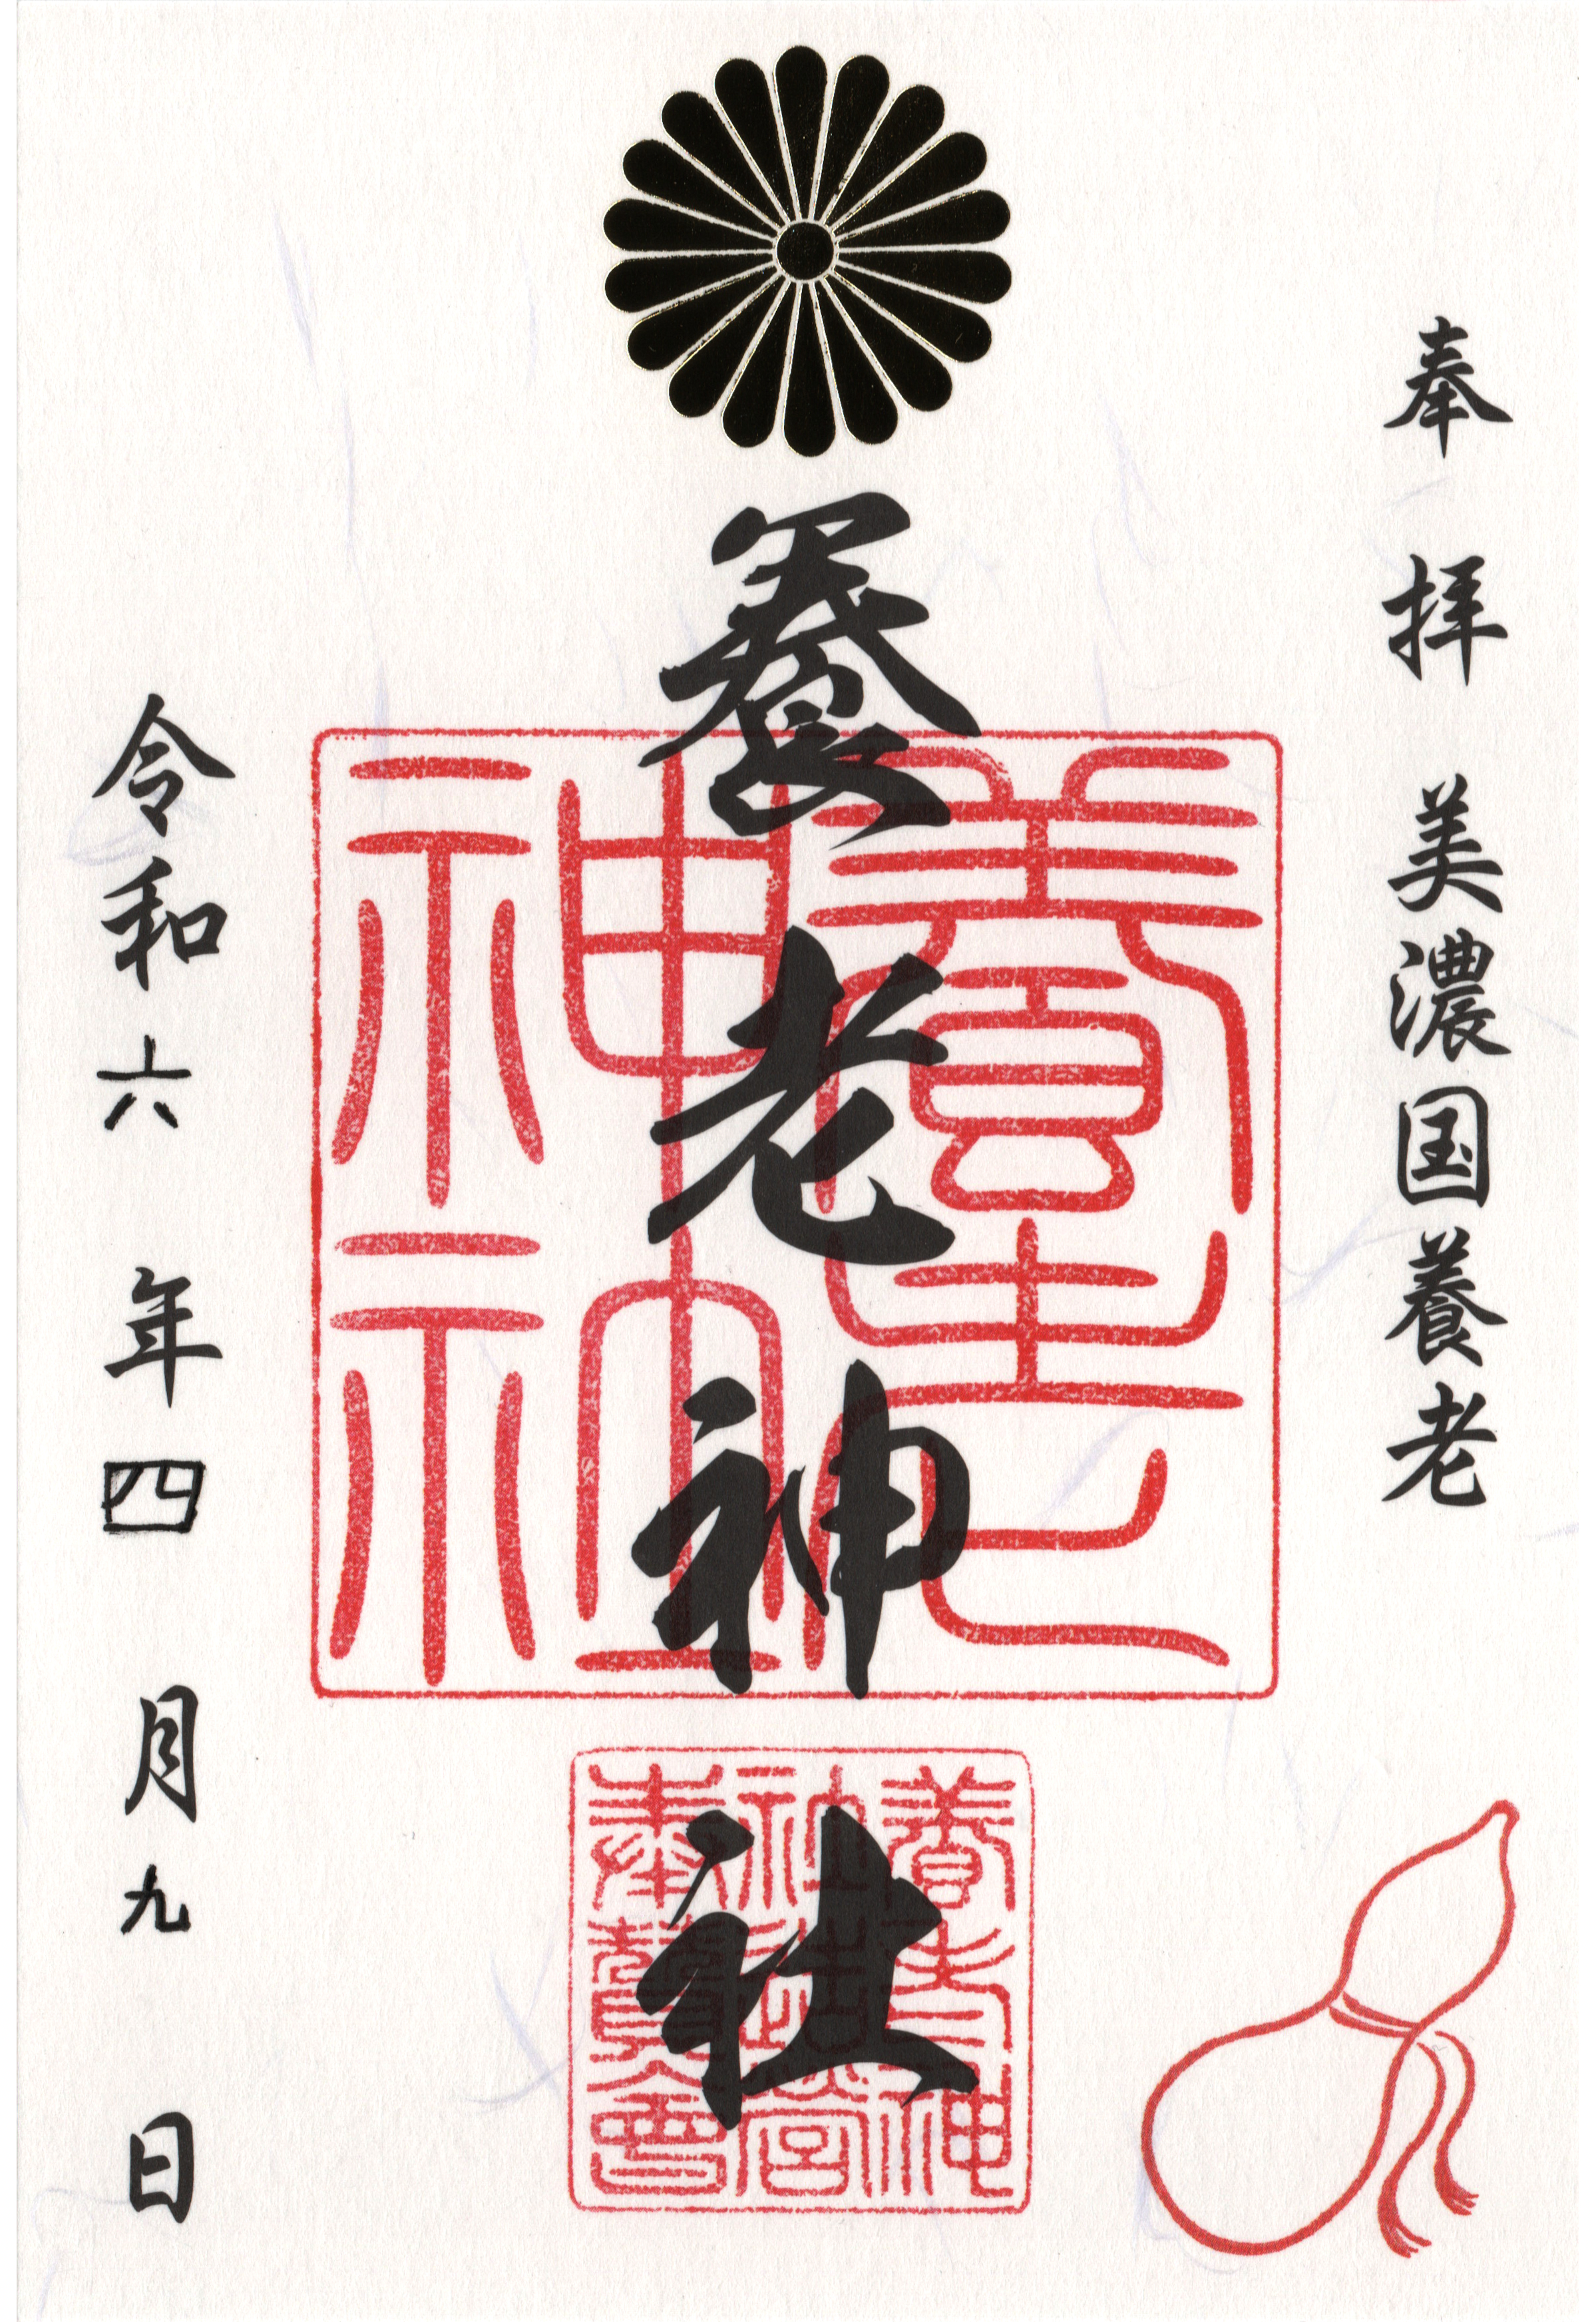 奉拝 美濃国養老
養老神社
養老神社
養老神
社造営
奉賛会
令和六年四月九日